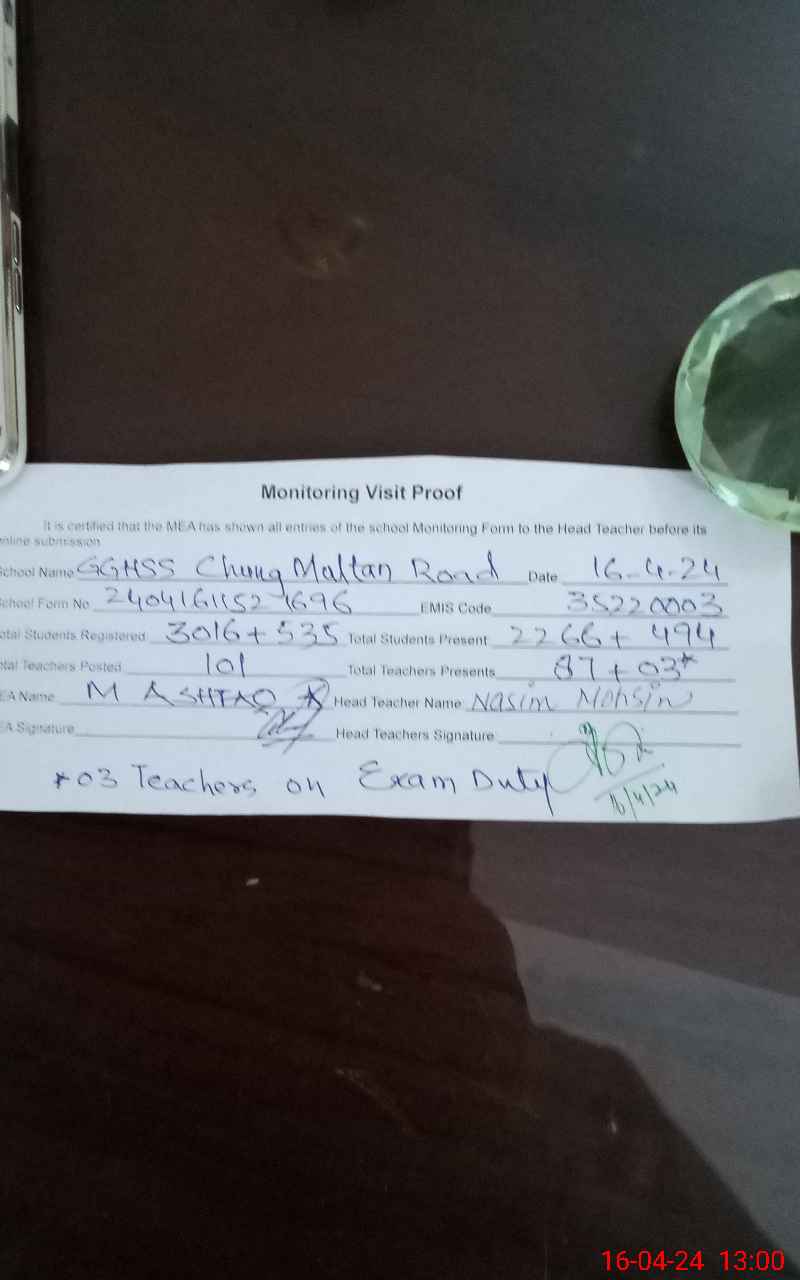 Monitoring Visit Proof
It is certified that the MEA has shown all entries of the school Monitoring Form to the Head Teacher before its
nline submission
School Name GGHSS Chung Maltan Road Date 16-4-24
School Form No 24041611521696 EMIS Code 35220003
otal Students Registered 3016+535 Total Students Present 2266+ 494
otal Teachers Posted 101 Total Teachers Presents 87+03*
EA Name M ASHFAQ Head Teacher Name Nasim Mohsin
EA Signature Head Teachers Signature
*03 Teachers on Exam Duty
16/4/24
16-04-24 13:00